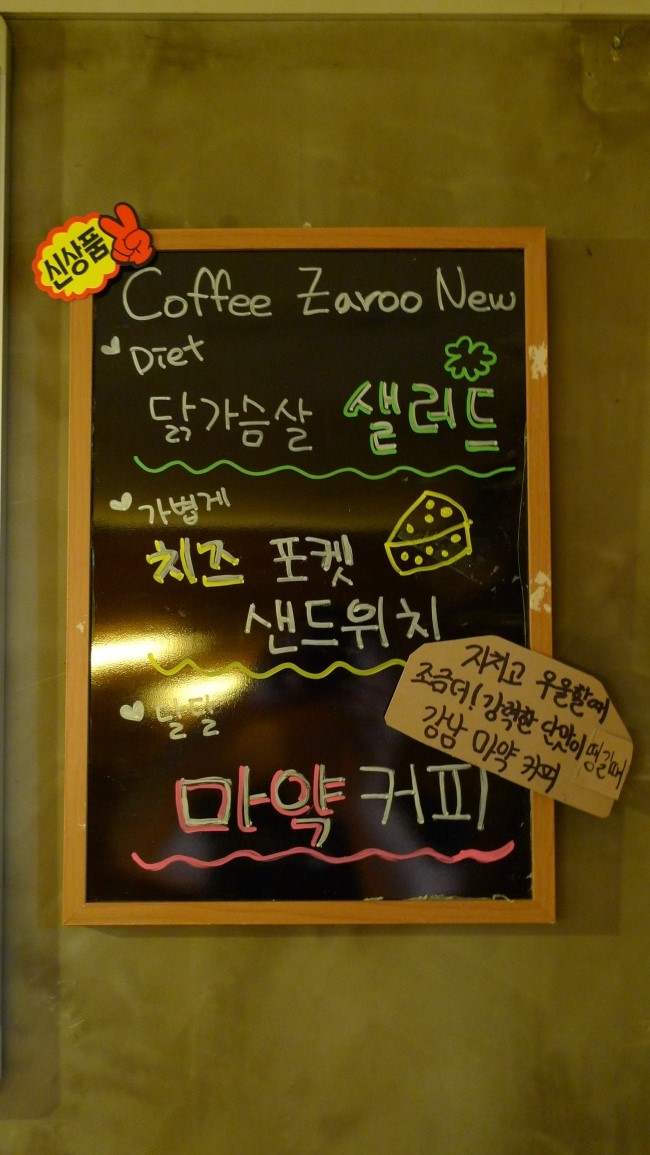 신상품
Coffee Zaroo New
Diet
닭가슴살 샐러드
가볍게
치즈 포켓
샌드위치
달달
마약 커피
지치고 우울할때
조금더! 강력한 단맛이 땡길때
강남 마약 커피